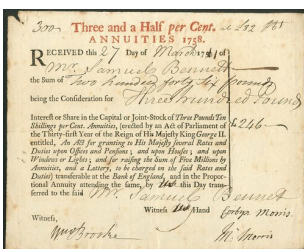 300 Three and a Half per Cent. at £82 Pct
ANNUITIES 1758.
RECEIVED this 27 Day of March 1761 of
Mr. Samuel Bennett
the Sum of Two hundred forty Six Pounds
being the Consideration for Three hundred Pounds
Interest or Share in the Capital or Joint-Stock of Three Pounds Ten
Shillings per Cent. Annuities, (erected by an Act of Parliament of
the Thirty-first Year of the Reign of His Majesty King George II.
entitled, An Act for granting to His Majesty several Rates and
Duties upon Offices and Pensions; and upon Houses; and upon
Windows or Lights; and for raising the Sum of Five Millions by
Annuities, and a Lottery, to be charged on the said Rates and
Duties) transferable at the Bank of England, and in the Propor-
tional Annuity attending the same, by this Day trans-
£246
ferred to the said Mr. Samuel Bennet
Witness Hand
Witness, Morris
Wm Brooke Morris